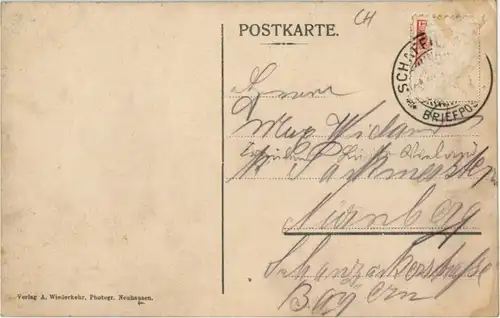 POSTKARTE.
CH
SCHAFFH
BRIEFPO
Herrn
Max Wieland
Parkmeister
Nürnberg
Schanzäckerstraße
Bayern
Verlag A. Wiederkehr, Photogr. Neuhausen.